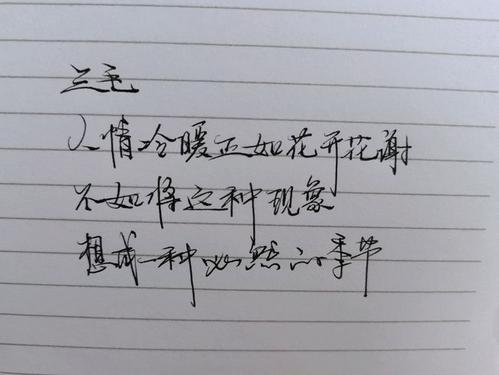 三毛
人情冷暖正如花开花谢
不如将这种现象
想成一种必然的季节